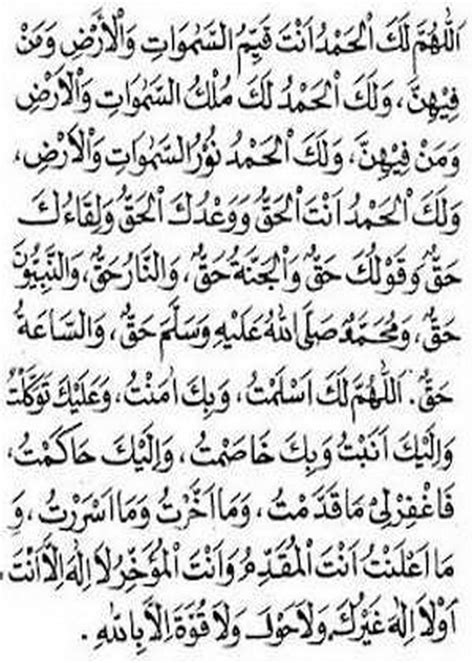 اَللّٰهُمَّ لَكَ الْحَمْدُ اَنْتَ قَيِّمُ السَّمٰوَاتِ وَالْأَرْضِ وَمَنْ
فِيْهِنَّ، وَلَكَ الْحَمْدُ لَكَ مُلْكُ السَّمٰوَاتِ وَالْاَرْضِ
وَمَنْ فِيْهِنَّ، وَلَكَ الْحَمْدُ نُوْرُ السَّمٰوَاتِ وَالْاَرْضِ،
وَلَكَ الْحَمْدُ اَنْتَ الْحَقُّ وَوَعْدُكَ الْحَقُّ وَلِقَاءُكَ
حَقٌّ وَقَوْلُكَ حَقٌّ وَالْجَنَّةُ حَقٌّ، وَالنَّارُ حَقٌّ، وَالنَّبِيُّوْنَ
حَقٌّ، وَمُحَمَّدٌ صَلَّى اللهُ عَلَيْهِ وَسَلَّمَ حَقٌّ، وَالسَّاعَةُ
حَقٌّ. اَللّٰهُمَّ لَكَ اَسْلَمْتُ، وَبِكَ اٰمَنْتُ، وَعَلَيْكَ تَوَكَّلْتُ
وَاِلَيْكَ اَنَبْتُ وَبِكَ خَاصَمْتُ، وَاِلَيْكَ حَاكَمْتُ،
فَاغْفِرْلِيْ مَا قَدَّمْتُ، وَمَا اَخَّرْتُ وَمَا اَسْرَرْتُ، وَ
مَا اَعْلَنْتُ اَنْتَ الْمُقَدِّمُ وَاَنْتَ الْمُؤَخِّرُ لَا اِلٰهَ اِلَّا اَنْتَ،
اَوْ لَا اِلٰهَ غَيْرُكَ وَلَا حَوْلَ وَلَا قُوَّةَ اِلَّا بِاللهِ.